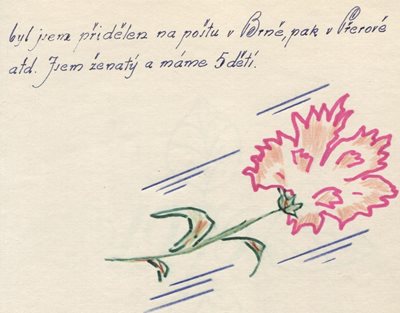 byl jsem přidělen na poštu v Brně, pak v Přerově
atd. Jsem ženatý a máme 5 dětí.